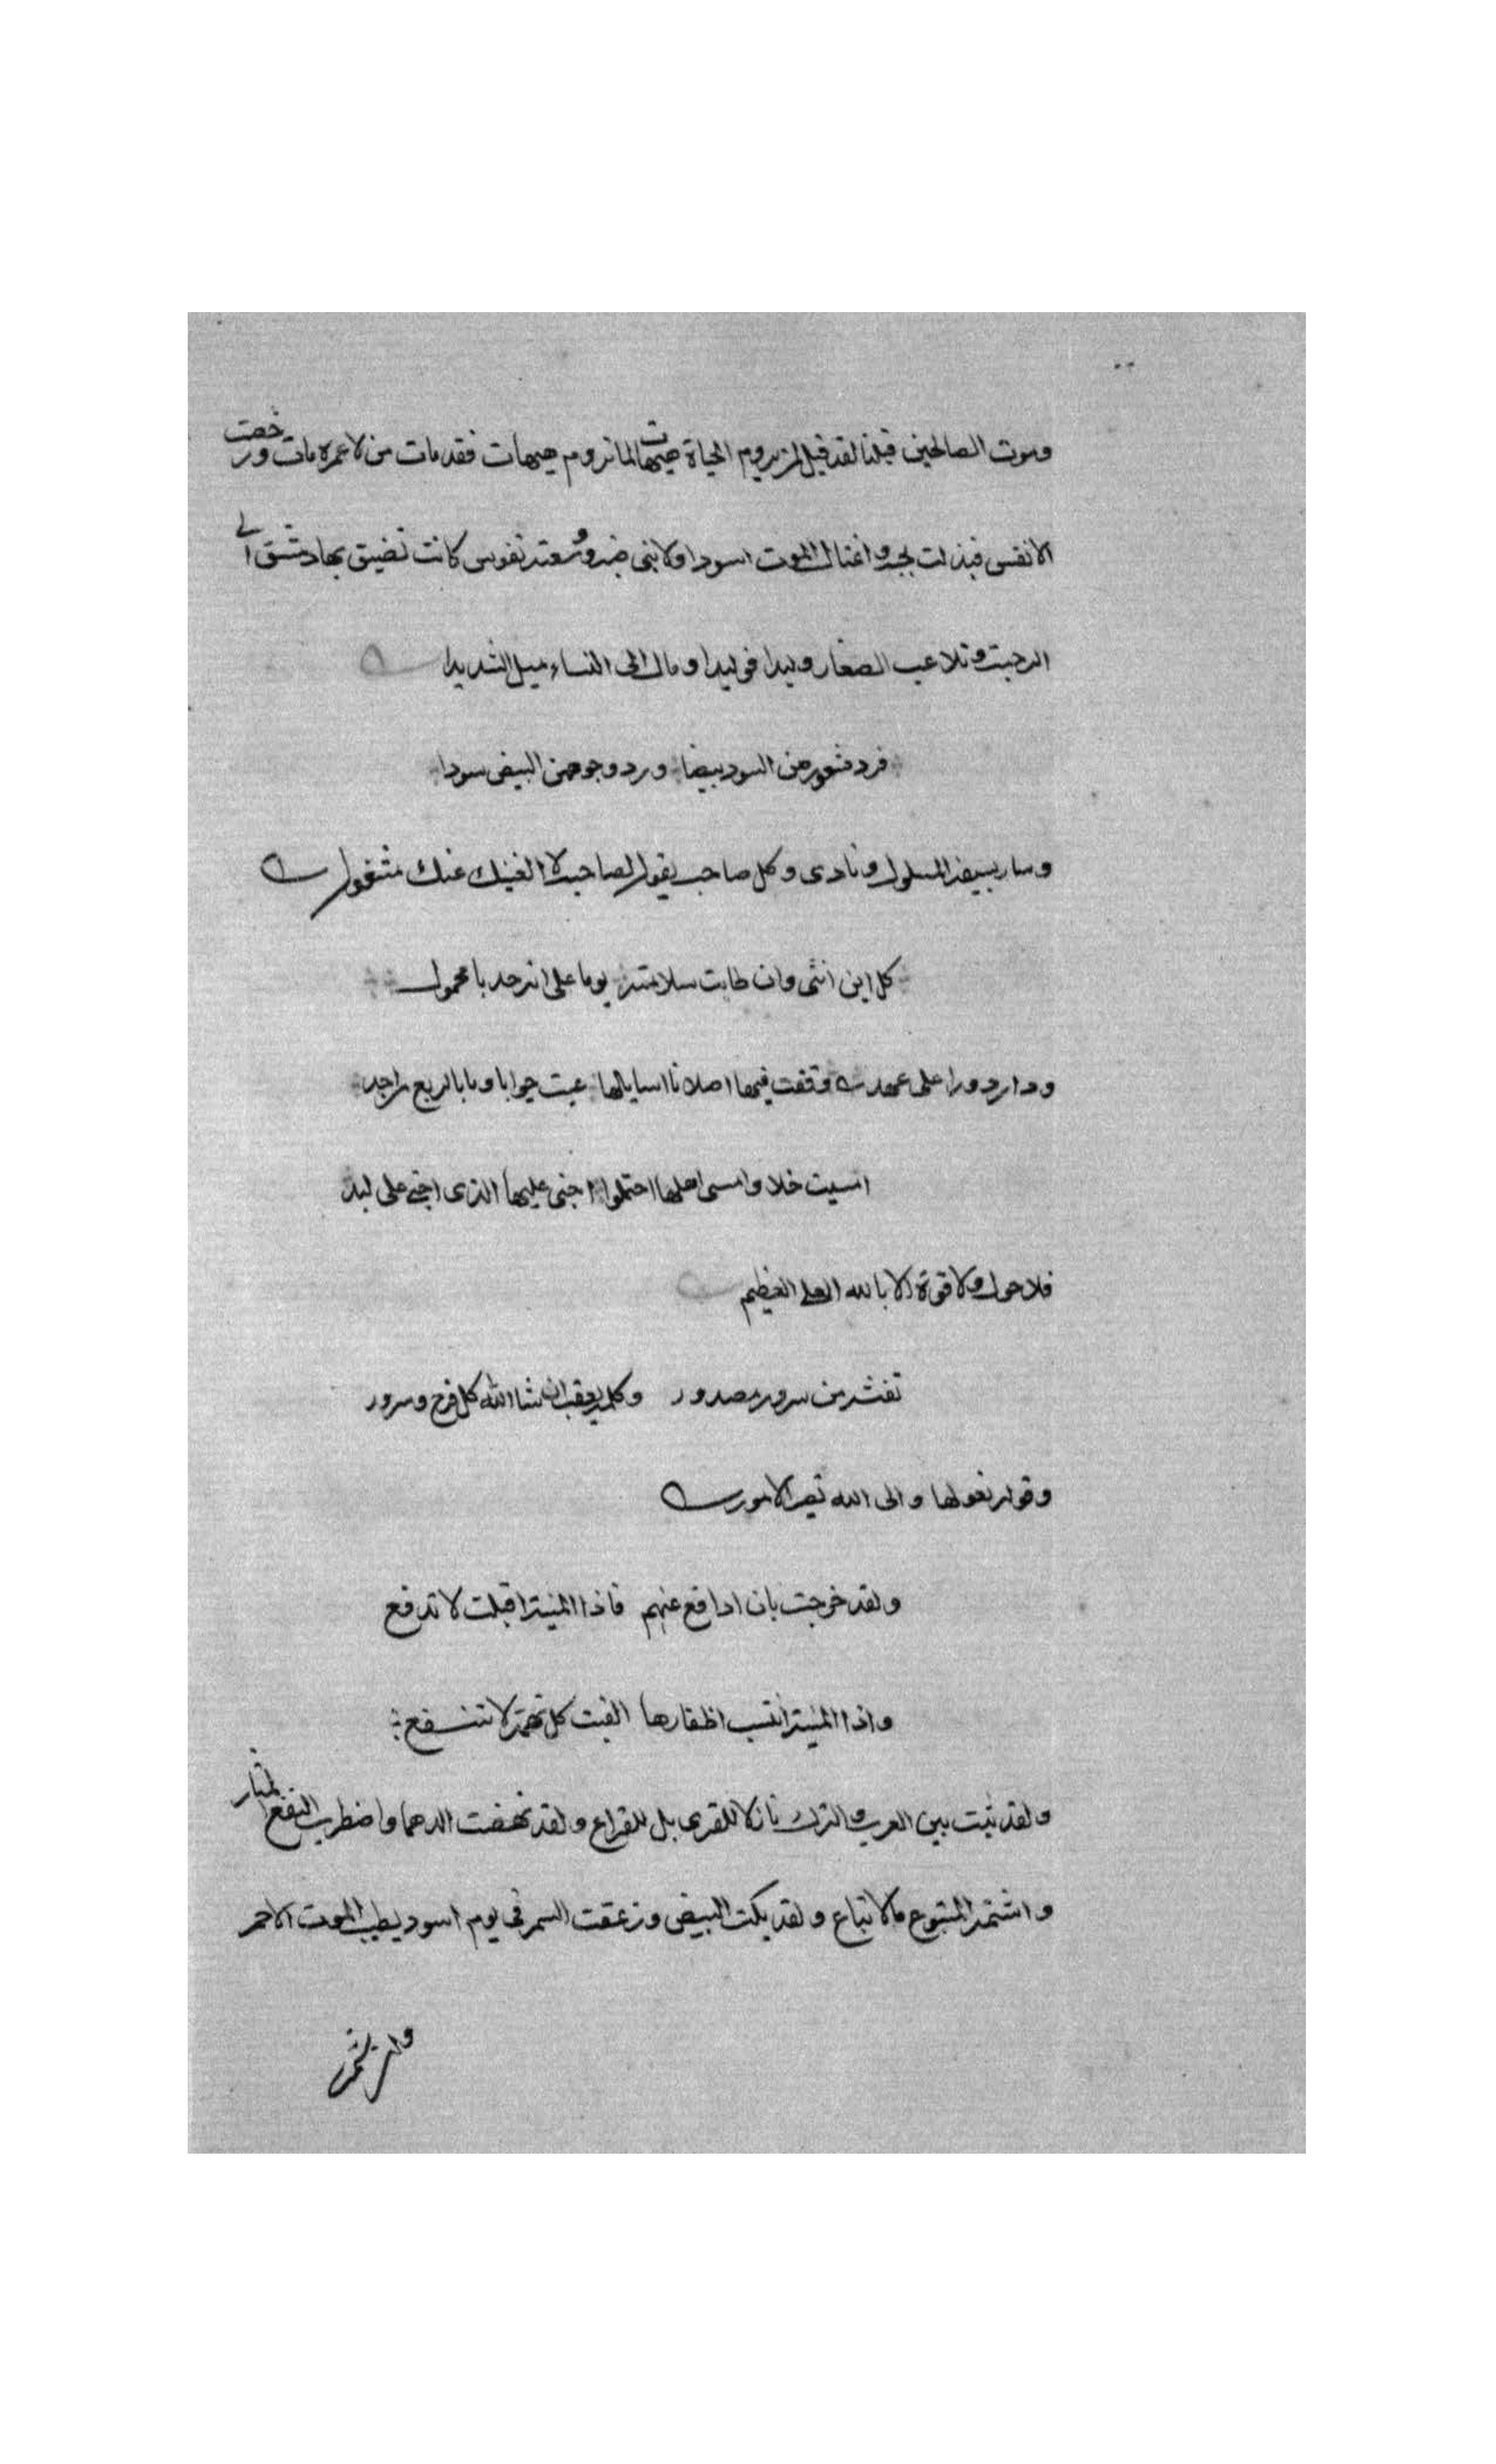 وموت الصالحين قبلنا لقد قيل لمن يروم الحياة هيهات لما تروم هيهات فقد مات من لا عمره مات ورخصت
الانفس فبذلت اغتال الموت اسودا ولا بني نفوس كانت تضيق بها دمشق الى
الرحبة وتلاعب الصغار وليدا فوليدا ومال الى النساء ميل الشديدا
فرد شعورهن السود بيضا ورد وجوههن البيض سودا
وسار بسيفه المسلول ونادى وكل صاحب يقول لصاحبه لا الفينك عنك مشغول
كل ابن انثى وان طابت سلامته يوما على الة حدبا محمول
ودار دورا على عهد وقفت فيها اصلانا اسايلها عيت جوابا وما بالربع من احد
امسيت خلا وامسى اهلها احتملوا اخنى عليها الذي اخنى على لبد
فلا حول ولا قوة الا بالله العلي العظيم
نفثة من مصدور وكلمة يعقبها ان شا الله كل فرح وسرور
وقولة نقولها والى الله تصير الامور
ولقد خرجت بان ادافع عنهم فاذا المنية اقبلت لا تدفع
واذا المنية انشبت اظفارها الفيت كل تميمة لا تنفع
ولقد بين العرب والترك نازلا للقرى بل للقراع ولقد نهضت الدهما واضطرب النقع المثار
المتبوع والاتباع ولقد بكت البيض وزعقت السمر في يوم اسود يطلب الموت الاحمر